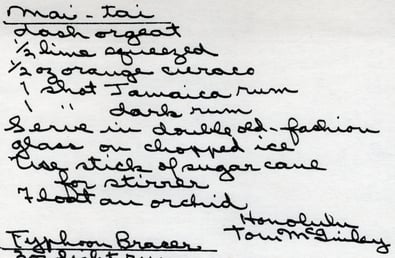 Mai - tai
dash orgeat
1/2 lime squeezed
1/2 oz orange curaco
1 shot Jamaica rum
1 " dark rum
Serve in double old-fashion
glass on chopped ice
Use stick of sugar cane
for stirrer
Float an orchid
Honolulu
Tom McGinley
Typhoon Bracer